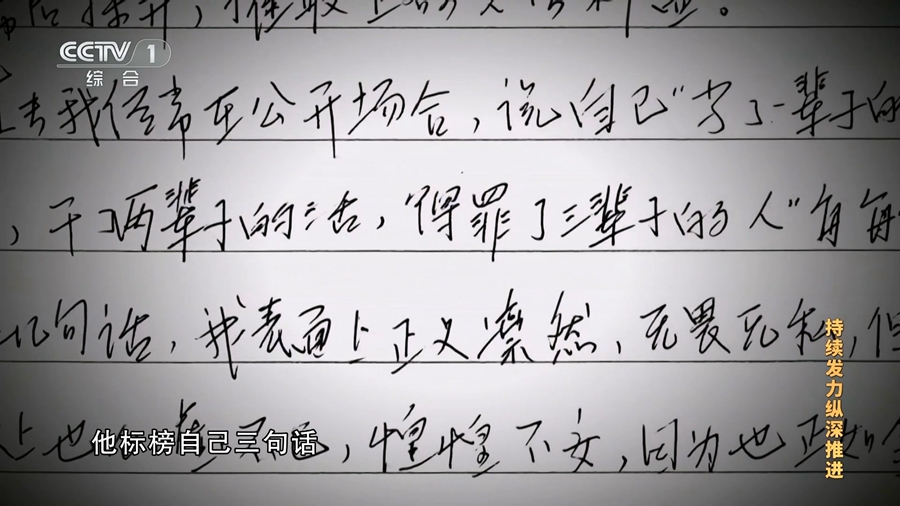 CCTV 1
综合
去我经常在公开场合，说自己“穷了一辈子的
，干了两辈子的活，得罪了三辈子的人”每每
几句话，我表面上正义凛然，无畏无私，但
也
，惶惶不安，因为也正如
他标榜自己三句话
持续发力纵深推进